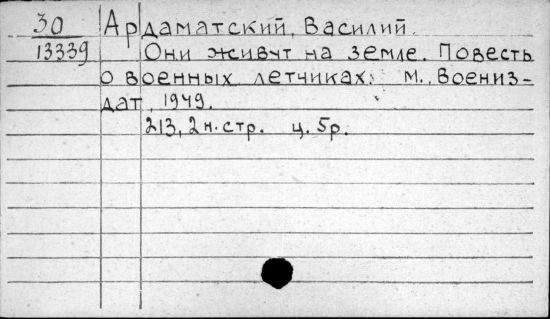 30 Ардаматский, Василий.
13339 Они живут на земле. Повесть
о военных летчиках. М., Воениз-
дат, 1949.
213, 2 н. стр. ц. 5р.